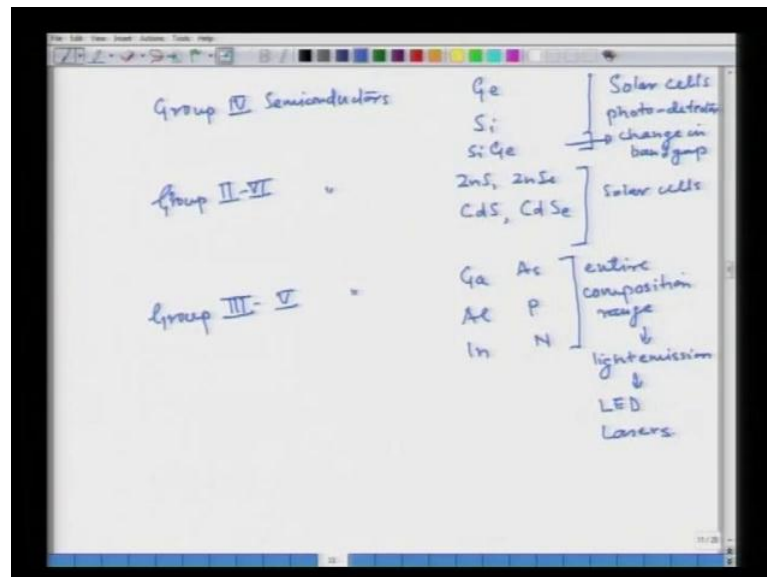 File Edit View Insert Actions Tools Help
Group IV Semiconductors
Ge
Si
SiGe
Solar cells
photo-detector
change in
band gap
Group II-VI "
ZnS, ZnSe
CdS, CdSe
Solar cells
Group III-V "
Ga As
Al P
In N
entire
composition
range
light emission
LED
Lasers